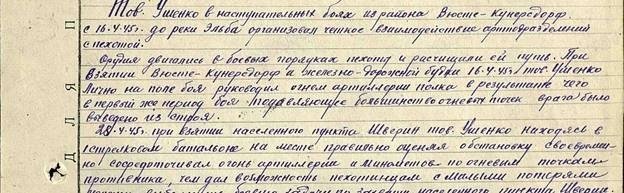 Тов. Ушенко в наступательных боях из района Вюсте-Кунерсдорф
с 16.4.45г. до реки Эльба организовал четкое взаимодействие артподразделений
с пехотой.
Орудия двигались в боевых порядках пехоты и расчищали ей путь. При
взятии Вюсте-Кунерсдорф и железно-дорожной будки 16.4.45г. тов. Ушенко
лично на поле боя руководил огнем артиллерии полка в результате чего
в первый же период боя подавляющее большинство огневых точек врага было
выведено из строя.
28.4.45г. при взятии населенного пункта Шверин тов. Ушенко находясь в
1 стрелковом батальоне на месте правильно оценяя обстановку своевремен-
но сосредоточивал огонь артиллерии и минометов по огневым точкам
противника, чем дал возможность пехотинцам с малыми потерями
боевую задачу по взятию населенного пункта Шверин.
П
Д Л Я